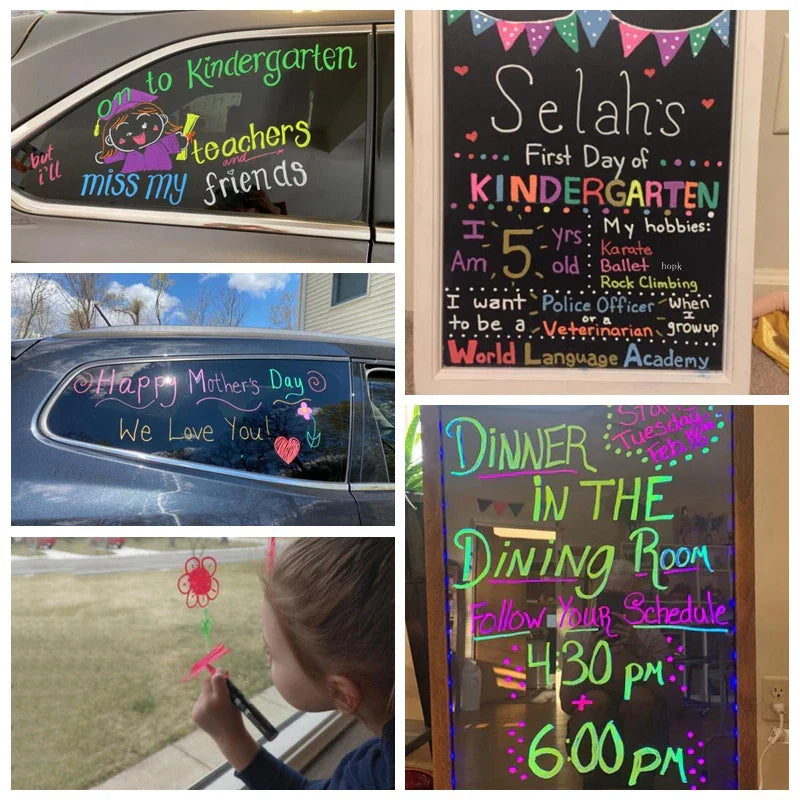 on to Kindergarten
but
i'll
teachers
and
miss my friends
Selah's
First Day of
KINDERGARTEN
I
Am
5
yrs
old
My hobbies:
Karate
Ballet hopk
Rock Climbing
I want
to be a
Police Officer
or a
Veterinarian
when
I
grow up
World Language Academy
Happy Mother's Day
We Love You!
Tuesday
Feb
DINNER
IN THE
DINING ROOM
Follow Your Schedule
4:30 pm
+
6:00 pm